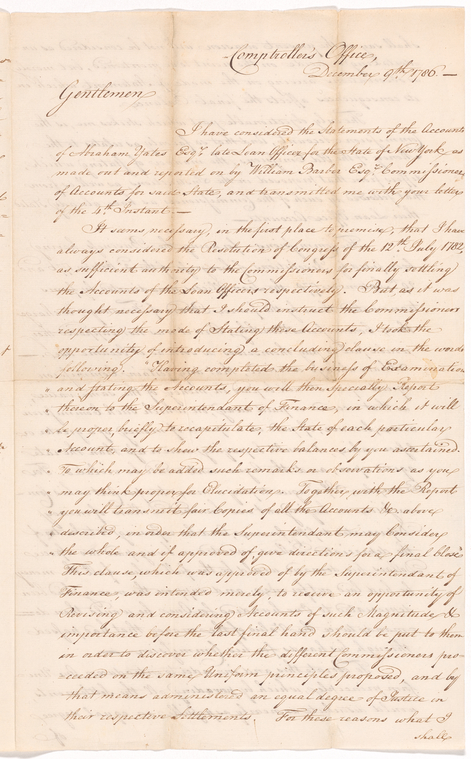 Comptroller's Office,
December 9th 1786.—
Gentlemen
I have considered the Statements of the Accounts
of Abraham Yates Esqr. late Loan Officer for the State of New York as
made out and reported on by William Barber Esqr. Commissioner
of Accounts for said State, and transmitted me with your letter
of the 4th Instant.—
It seems necessary, in the first place to premise, that I have
always considered the Resolution of Congress of the 12th July 1782,
as sufficient authority to the Commissioners for finally settling
the Accounts of the Loan Officers respectively. But, as it was
thought necessary that I should instruct the Commissioners
respecting the mode of Stating these Accounts, I took the
opportunity of introducing a concluding clause in the words
following. "Having completed the business of Examination
" and stating the Accounts, you will then specially Report
" thereon to the Superintendant of Finance, in which it will
" be proper, briefly to recapitulate, the State of each particular
" Account, and to shew the respective balances by you ascertained.
" To which may be added such remarks or observations as you
" may think proper for Elucidation. Together with the Report
" you will transmit fair Copies of all the Accounts &c above
" described, in order that the Superintendant may Consider
" the whole and if approved of, give directions for a final Close"
This clause, which was approved of by the Superintendant of
Finance, was intended merely, to receive an opportunity of
Revising and considering Accounts of such Magnitude &
importance before the last final hand should be put to them
in order to discover whether the different Commissioners pro-
ceeded on the same Uniform principles proposed, and by
that means administered an equal degree of Justice in
their respective Settlements. For these reasons what I
shall